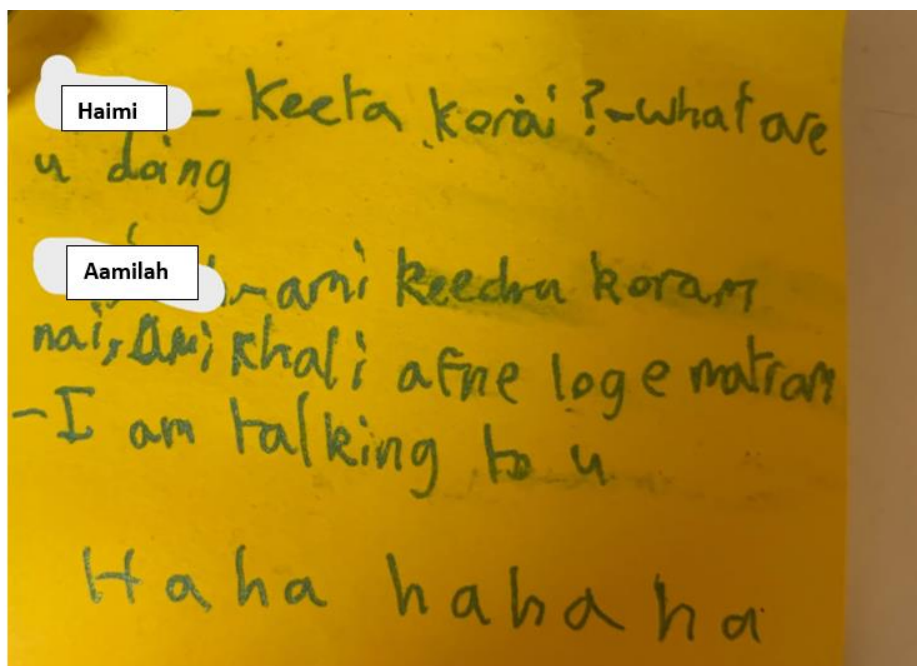 Haimi - Keeta korai? - what are
u doing
Aamilah - ami keedru koram
nai, Ami khali afne loge matram
- I am talking to u
Haha hahaha